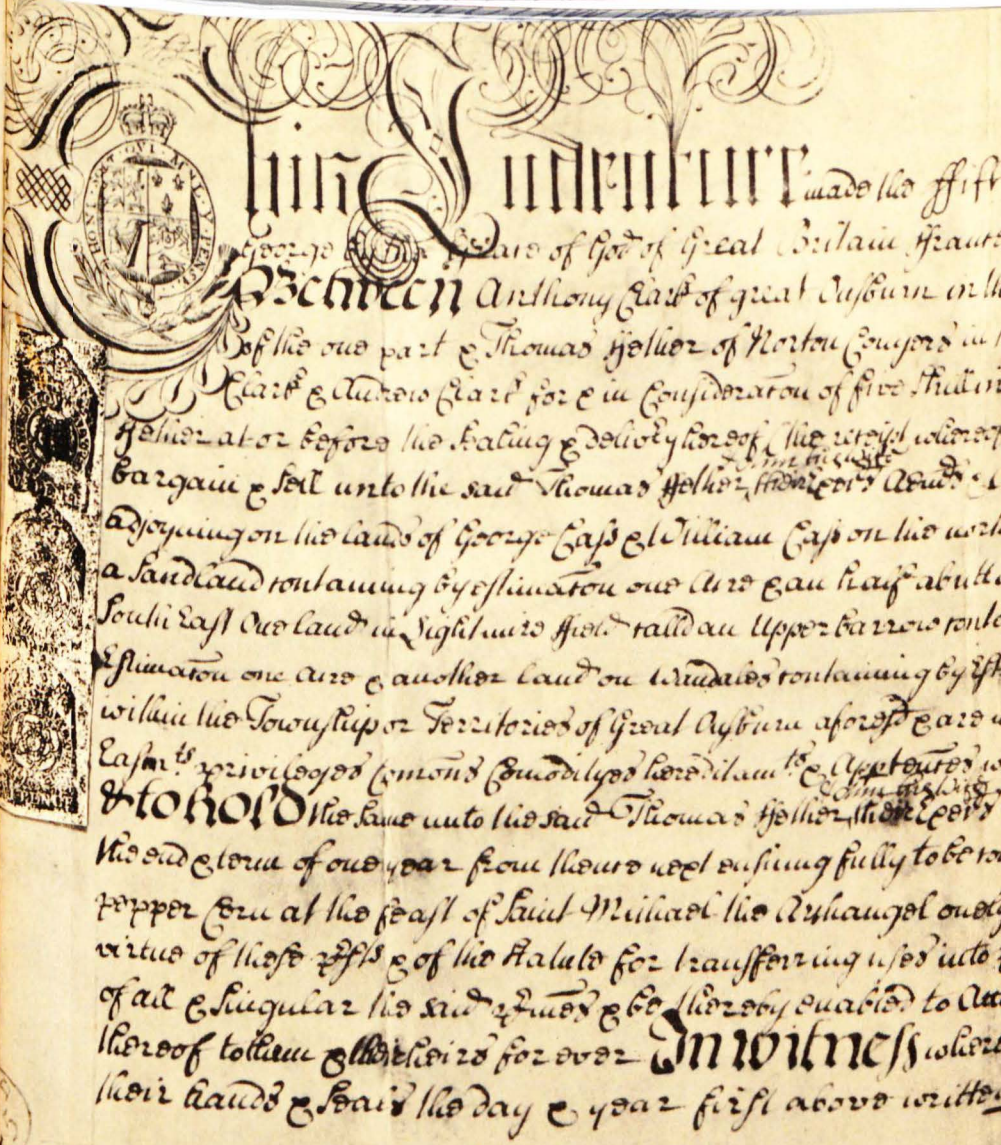 HONI SOIT QUI MAL Y PENSE
This Indenture made the ffift
George by the Grace of God of Great Britain ffrance
Between Anthony Clark of great Ousburn in the
of the one part & Thomas Hether of Norton Conyers in
Clark & Andrew Clark for & in Consideracon of five Shillin
Hether at or before the Sealing & delivy hereof (the receipt whereof
bargain & Sell unto the said Thomas Hether Exers Admrs &
adjoyning on the lands of George Cass & William Cass on the north
a Sandland containing by estimacon one Acre & an half abutti
South East One land in field calld an Upper barrow conta
Estimacon one Acre & another land on Wandales containing by Est
within the Township or Territories of Great Ousburn aforesd & are
Easmts priviledges comons Comoditys hereditamts & Apptences
& to hold the Same unto the said Thomas Hether Exers
the end & term of one year from thence next ensuing fully to be co
pepper Corn at the feast of Saint Michael the Archangel onely
virtue of these & of the Statute for transferring uses into
of all & Singular the said & be thereby enabled to
thereof to them & their heirs for ever In witness where
their hands & Seals the day & year first above written